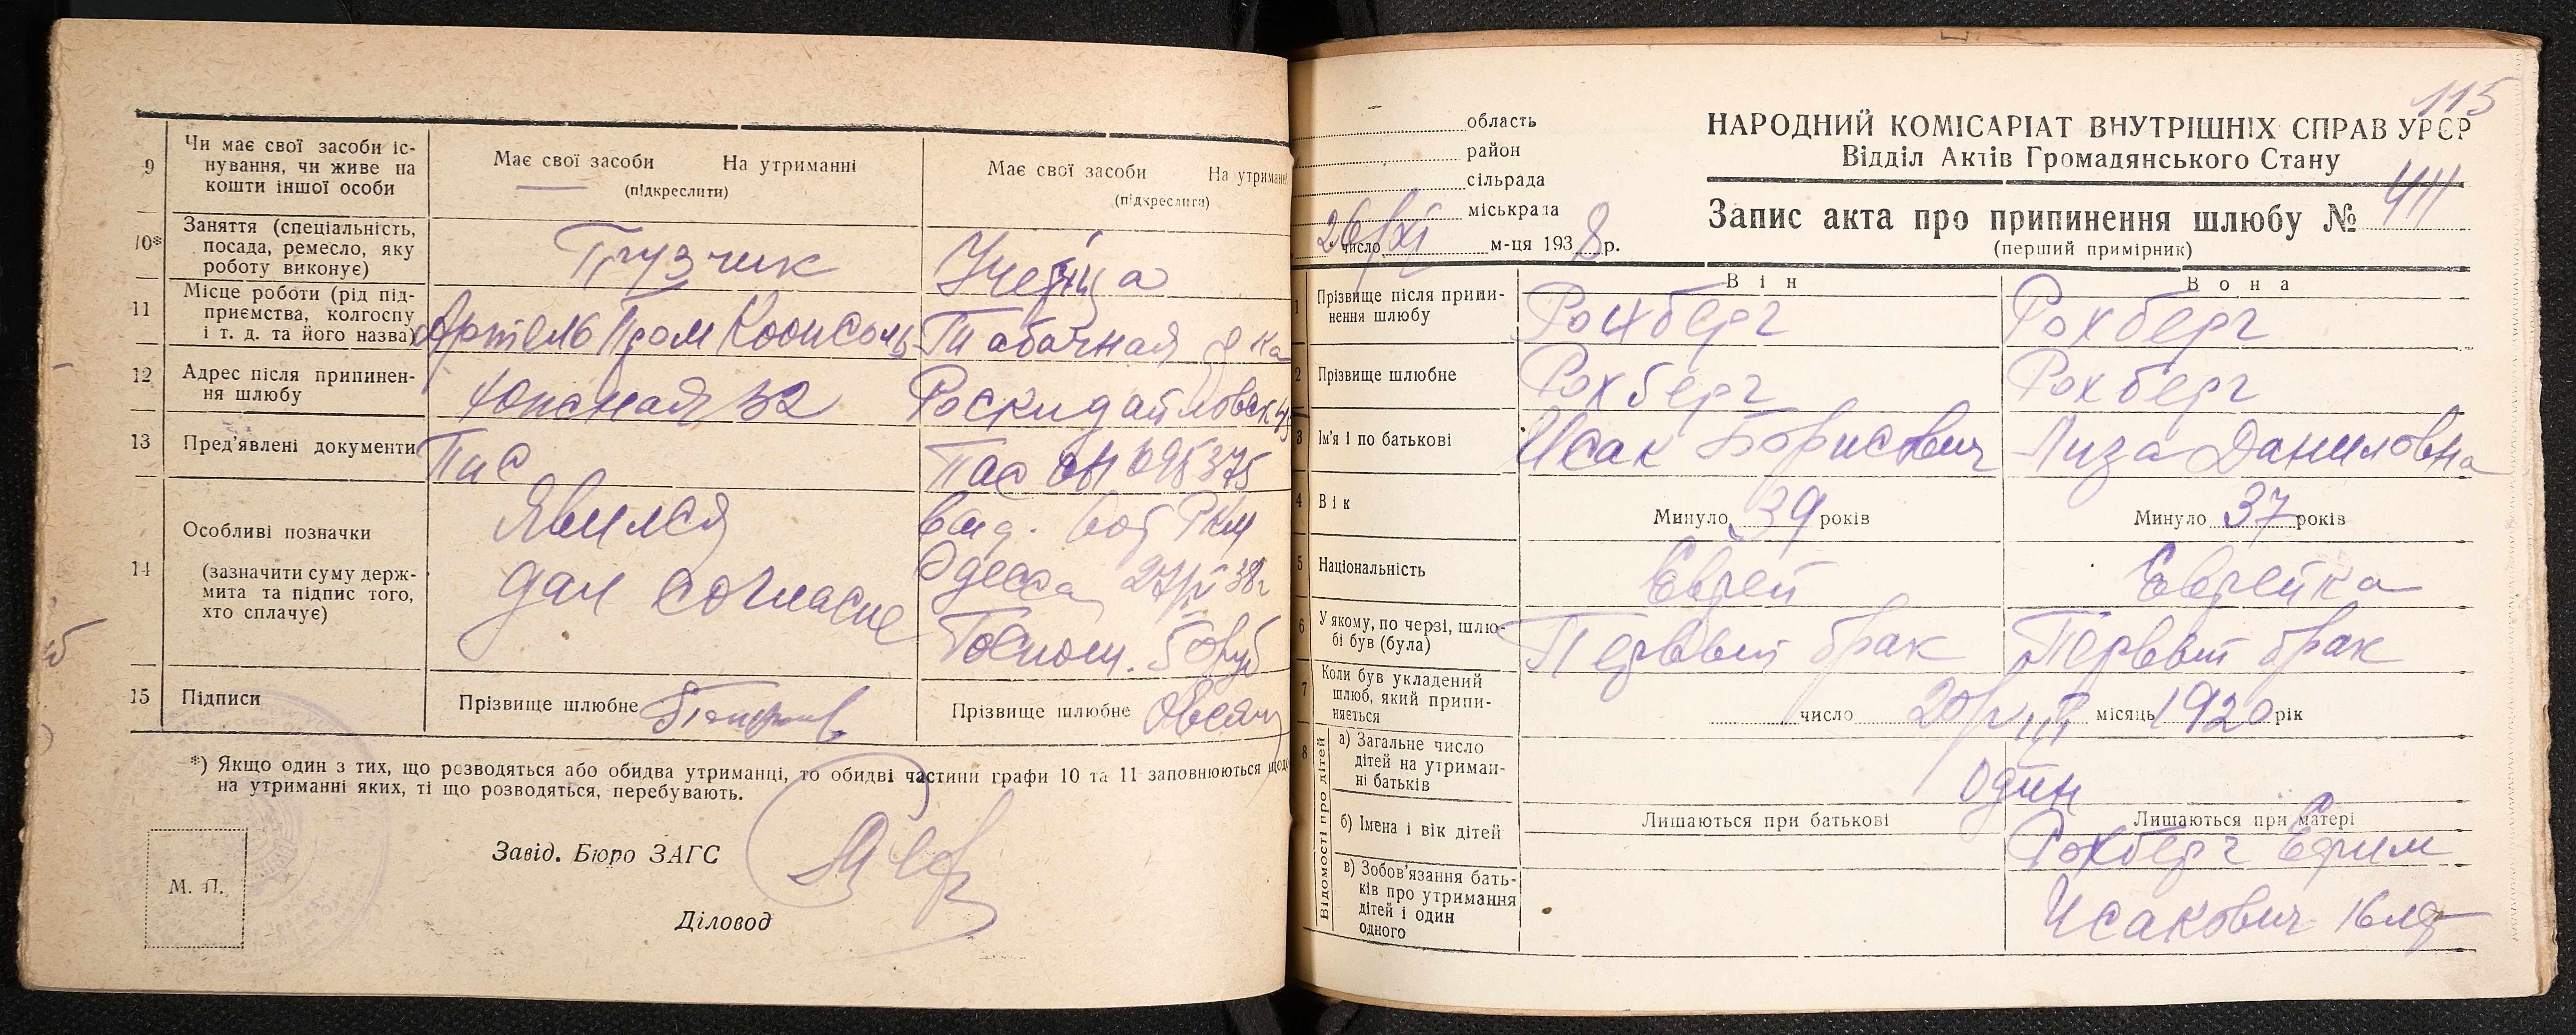 9
Чи має свої засоби іс-
нування, чи живе на
кошти іншої особи
Має свої засоби На утриманні
(підкреслити)
Має свої засоби На утриманні
(підкреслити)
10*
Заняття (спеціальність,
посада, ремесло, яку
роботу виконує)
Грузчик
11
Місце роботи (рід під-
приємства, колгоспу
і т. д. та його назва)
Артель
Табачная
12
Адрес після припинен-
ня шлюбу
Южная 32
13
Пред'явлені документи
Пас
Пас 095375
14
Особливі позначки
(зазначити суму держ-
мита та підпис того,
хто сплачує)
Явился
дал согласие
Одесса
Госпош. 50 руб
15
Підписи
Прізвище шлюбне
Прізвище шлюбне
*) Якщо один з тих, що розводяться або обидва утриманці, то обидві частини графи 10 та 11 заповнюються щодо
на утриманні яких, ті що розводяться, перебувають.
М. П.
Завід. Бюро ЗАГС
Діловод
115
область
район
сільрада
міськрада
26/XI число м-ця 1938 р.
НАРОДНИЙ КОМІСАРІАТ ВНУТРІШНІХ СПРАВ УРСР
Відділ Актів Громадянського Стану
Запис акта про припинення шлюбу №
(перший примірник)
Він
Вона
1
Прізвище після припи-
нення шлюбу
Рохберг
Рохберг
2
Прізвище шлюбне
Рохберг
Рохберг
3
Ім'я і по батькові
Исак Борисович
Лиза Даниловна
4
Вік
Минуло 39 років
Минуло 37 років
5
Національність
Еврей
Еврейка
6
У якому, по черзі, шлю-
бі був (була)
Первый брак
Первый брак
7
Коли був укладений
шлюб, який припи-
няється
число місяць 1920 рік
8
Відомості про дітей
а) Загальне число
дітей на утриман-
ні батьків
Один
б) Імена і вік дітей
Лишаються при батькові
Лишаються при матері
Рохберг Ефим
в) Зобов'язання бать-
ків про утримання
дітей і один
одного
Исакович 16 лет